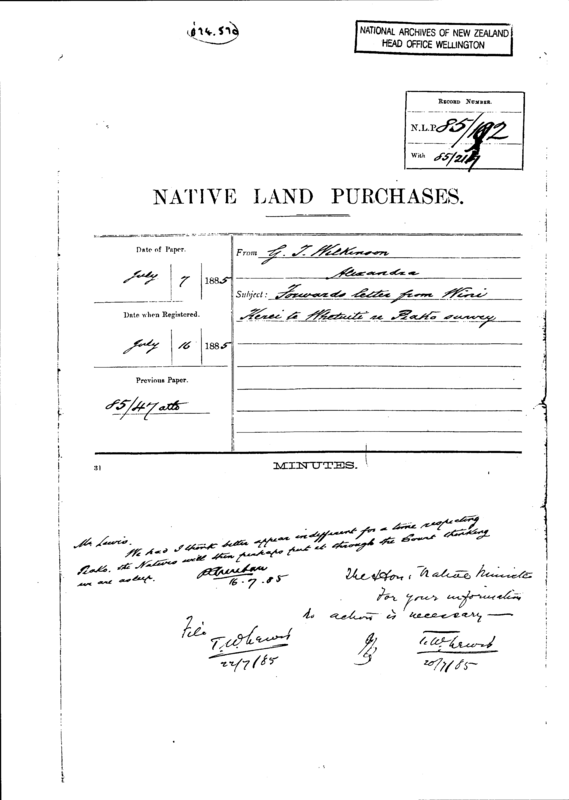 NATIONAL ARCHIVES OF NEW ZEALAND
HEAD OFFICE WELLINGTON
RECORD NUMBER.
N.L.P. 85/192
With 85/21
NATIVE LAND PURCHASES.
Date of Paper.
July 7 1885
Date when Registered.
July 16 1885
Previous Paper.
85/47 atto
From G. T. Wilkinson
Alexandra
Subject: Forwards letter from Wini
Kerei to Whetuite re Rako survey
31
MINUTES.
Mr Lewis.
We had I think better appear indifferent for a time respecting
Rako. the Natives will then perhaps put it through the Court thinking
we are asleep.
16.7.85
The Hon. Native Minister
For your information
No action is necessary —
T. W. Lewis
20/7/85
File
T. W. Lewis
22/7/85